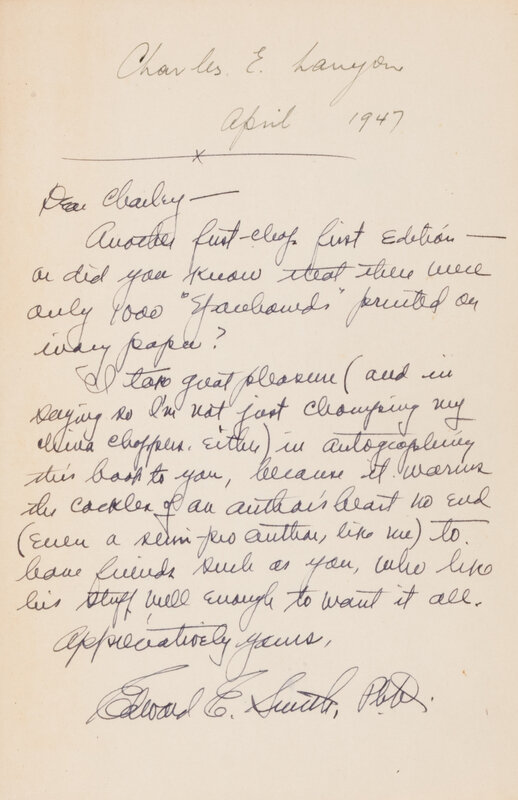 Charles. E. Lanyon
April 1947
x
Dear Charley—
Another first-chop first edition—
or did you know that there were
only 1000 "Spacehounds" printed on
ivory paper?
I take great pleasure (and in
saying so I'm not just chomping my
china choppers, either) in autographing
this book to you, because it warms
the cockles of an author's heart no end
(even a semi-pro author, like me) to
have friends such as you, who like
his stuff well enough to want it all.
Appreciatively yours,
Edward E. Smith, Ph.D.